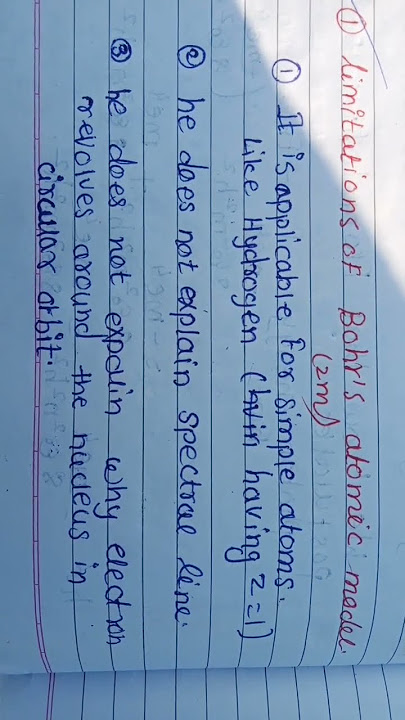 ① limitations of Bohr's atomic model.
(2M)
① It is applicable for simple atoms.
Like Hydrogen ( having z=1)
② he does not explain spectral line.
③ he does not expalin why electron
revolves around the nucleus in
circular orbit.